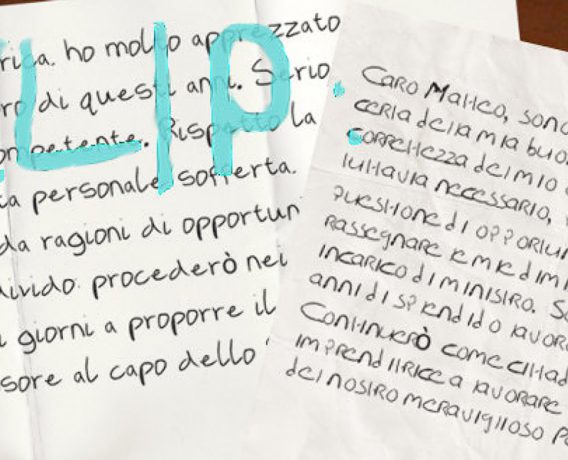 LIp
rica. ho molto apprezzato
ro di questi anni. Serio
ompetente. Rispetto la
ta personale sofferta.
da ragioni di opportun
divido procederò nei
i giorni a proporre il
sore al capo dello
Caro Matteo, sono
certa della mia buo
correttezza del mio
tuttavia necessario,
questione di opportun
rassegnare le mie dimi
incarico di ministro. So
anni di splendido lavoro
Continuerò come cittad
imprenditrice a lavorare
del nostro meraviglioso p